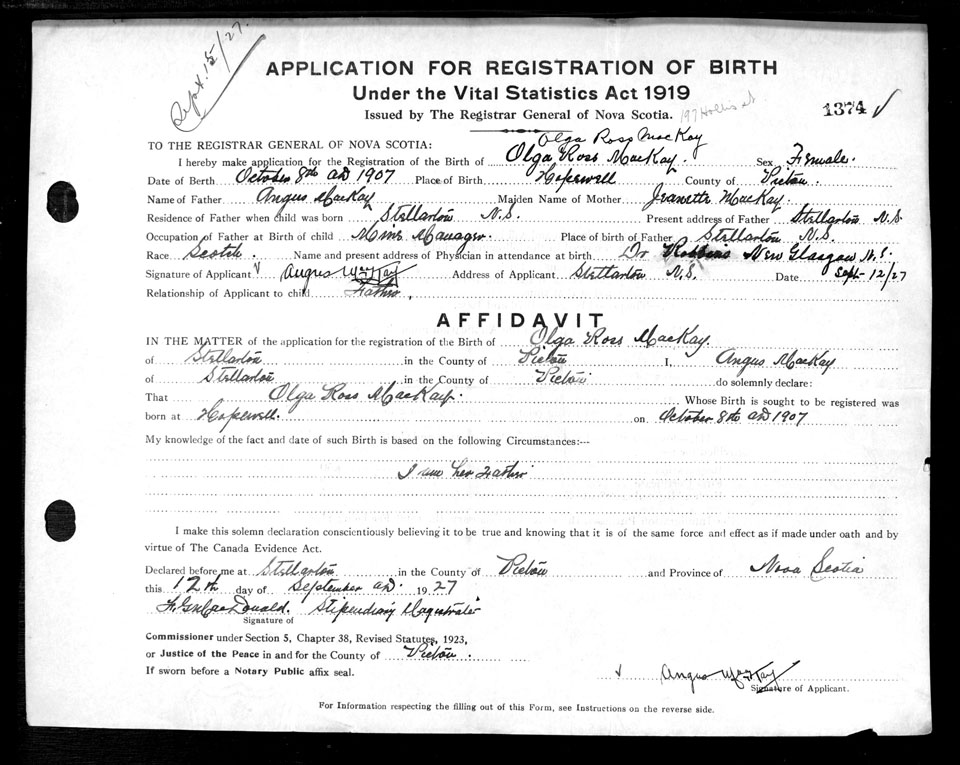 Sept. 15/27.
APPLICATION FOR REGISTRATION OF BIRTH
Under the Vital Statistics Act 1919
Issued by The Registrar General of Nova Scotia.
197 Hollis st
1374 √
Olga Ross MacKay
TO THE REGISTRAR GENERAL OF NOVA SCOTIA:
I hereby make application for the Registration of the Birth of Olga Ross MacKay. Sex Female.
Date of Birth October 8th AD 1907 Place of Birth Hopewell County of Pictou.
Name of Father Angus MacKay Maiden Name of Mother Jeanette MacKay.
Residence of Father when child was born Stellarton N.S. Present address of Father Stellarton N.S.
Occupation of Father at Birth of child Mine Manager. Place of birth of Father Stellarton N.S.
Race Scotch. Name and present address of Physician in attendance at birth Dr Robbins New Glasgow N.S.
Signature of Applicant √ Angus McKay Address of Applicant Stellarton N.S. Date Sept-12/27
Relationship of Applicant to child Father.
AFFIDAVIT
IN THE MATTER of the application for the registration of the Birth of Olga Ross MacKay.
of Stellarton in the County of Pictou I, Angus MacKay
of Stellarton in the County of Pictou do solemnly declare:
That Olga Ross MacKay. Whose Birth is sought to be registered was
born at Hopewell. on October 8th AD 1907
My knowledge of the fact and date of such Birth is based on the following Circumstances:--
I am her Father
I make this solemn declaration conscientiously believing it to be true and knowing that it is of the same force and effect as if made under oath and by
virtue of The Canada Evidence Act.
Declared before me at Stellarton in the County of Pictou and Province of Nova Scotia
this 12th day of September AD. 1927
MacDonald. Stipendiary Magistrate
Signature of
Commissioner under Section 5, Chapter 38, Revised Statutes, 1923,
or Justice of the Peace in and for the County of Pictou.
If sworn before a Notary Public affix seal.
√ Angus McKay
Signature of Applicant.
For Information respecting the filling out of this Form, see Instructions on the reverse side.